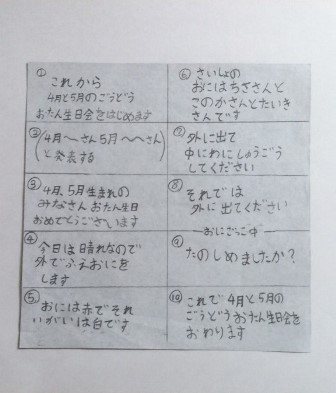 ①
これから
4月と5月のごうどう
おたん生日会をはじめます
②
(4月〜さん5月〜〜さん)
と発表する
③
4月、5月生まれの
みなさん おたん生日
おめでとうございます
④
今日は晴れなので
外でふえおにを
します
⑤
おには赤でそれ
いがいは白です
⑥
さいしょの
おにはちぎさんと
このかさんとたいき
さんです
⑦
外に出て
中にわにしゅうごう
してください
⑧
それでは
外に出てください
おにごっこ中
⑨
たのしめましたか?
⑩
これで4月と5月の
ごうどうおたん生日会を
おわります